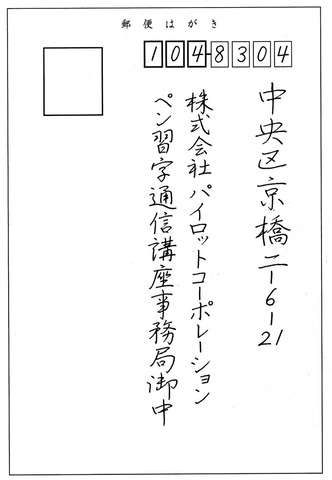 郵便はがき
104-8304
中央区京橋二-6-21
株式会社パイロットコーポレーション
ペン習字通信講座事務局御中